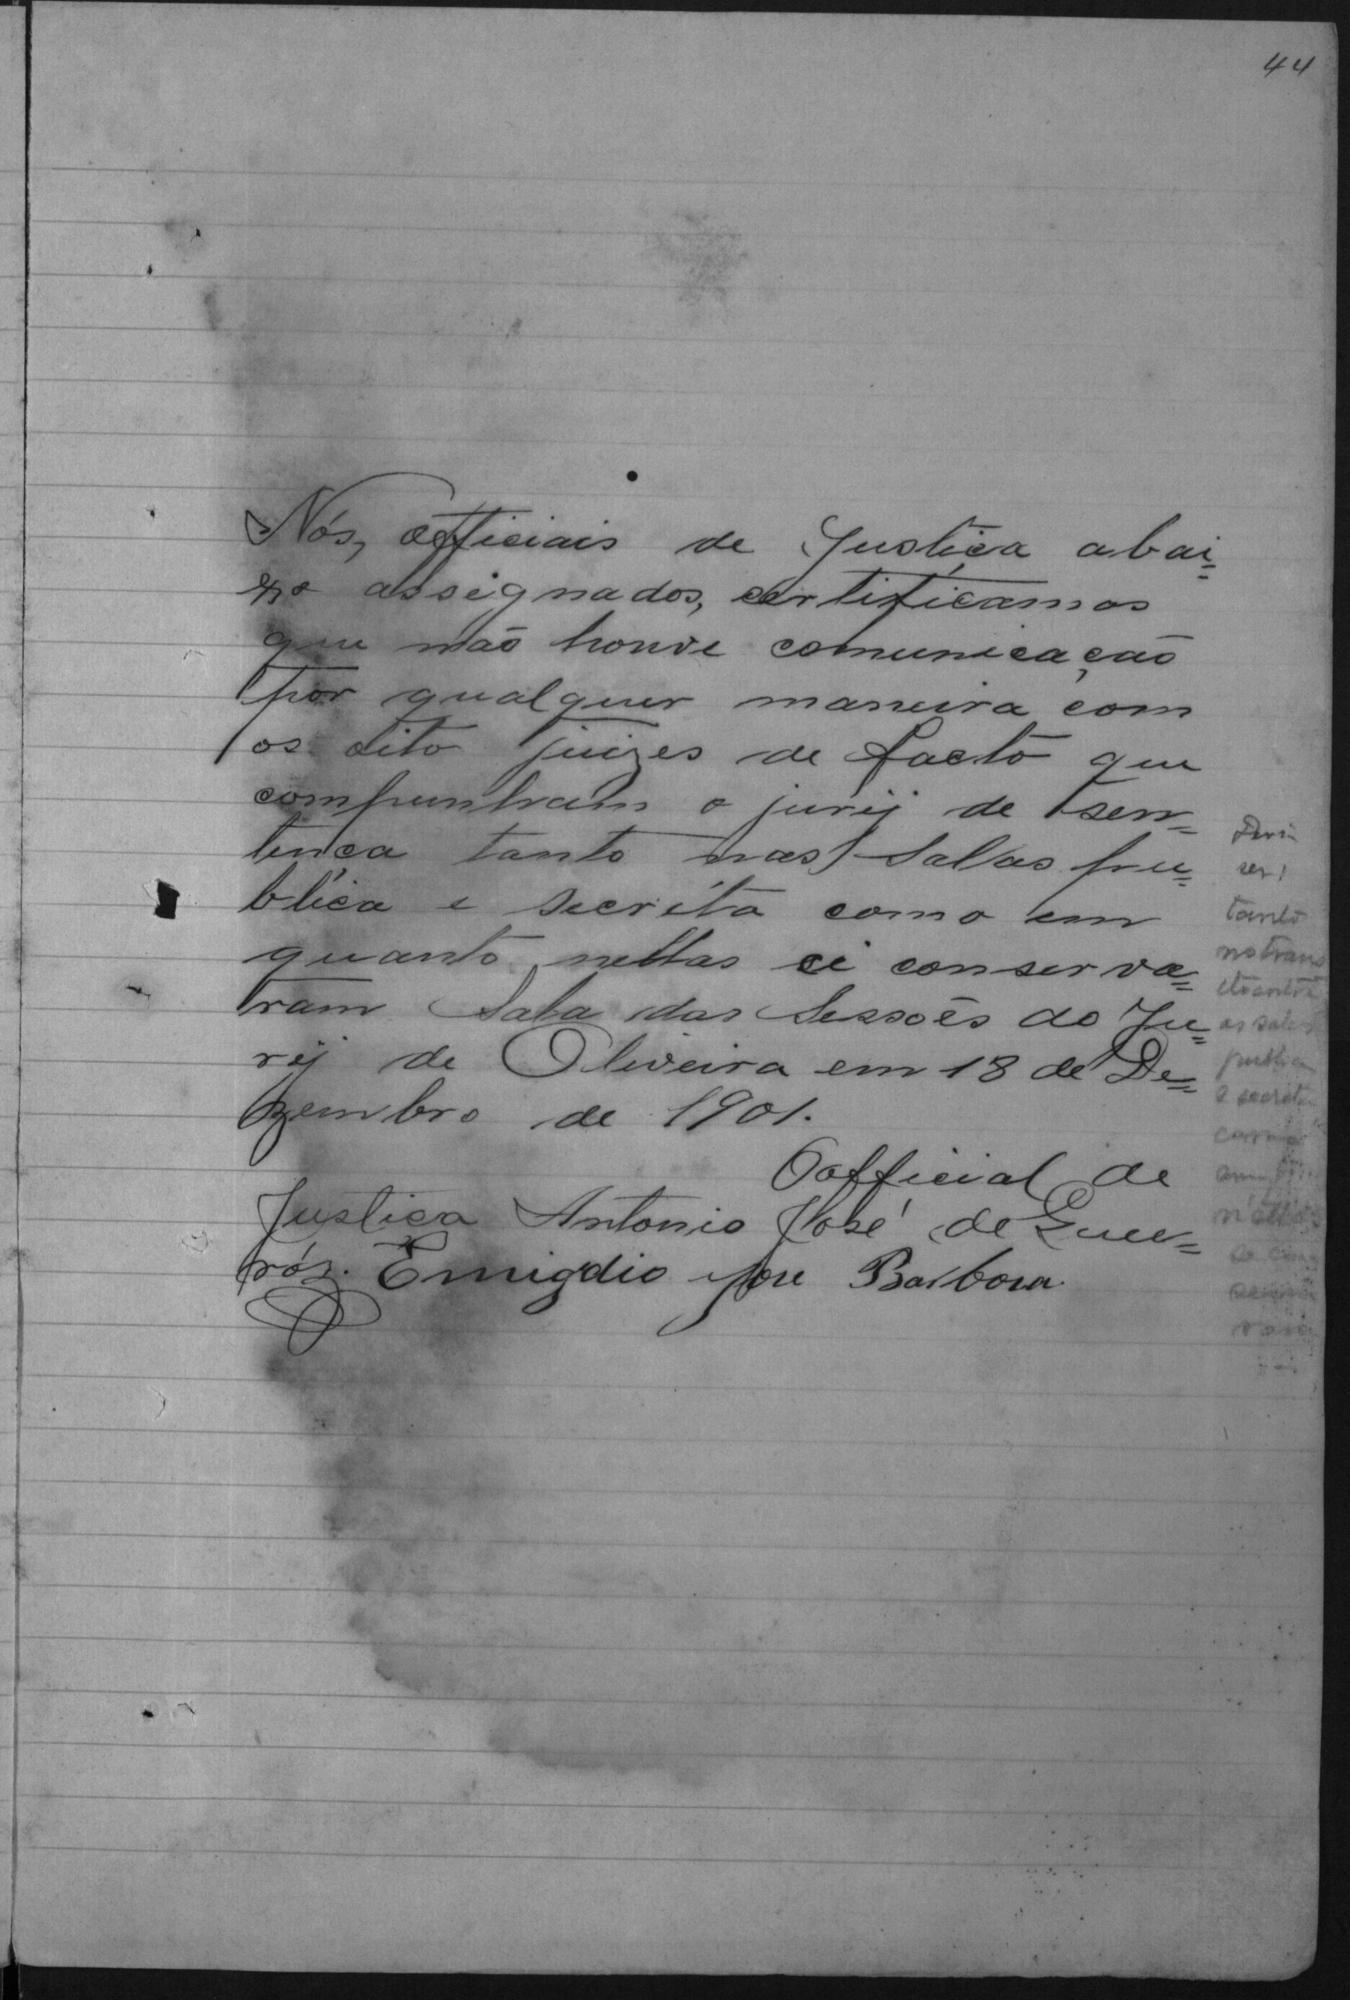 44
Nós, officiais de Justiça abai=
xo assignados, certificamos
que não houve comunicação
por qualquer maneira com
os oito juizes de facto que
compunham o jurij de sen=
tença tanto nas Salas pu=
blica e secréta como em
quanto nellas ci conserva=
ram Sala das Sessoēs do Ju=
rij de Oliveira em 18 de De=
zembro de 1901.
O official de
Justiça Antonio José de Quei=
róz. Emigdio Jose Barbosa
ser:
tanto
no trans
as salas
publica
e secreta
como